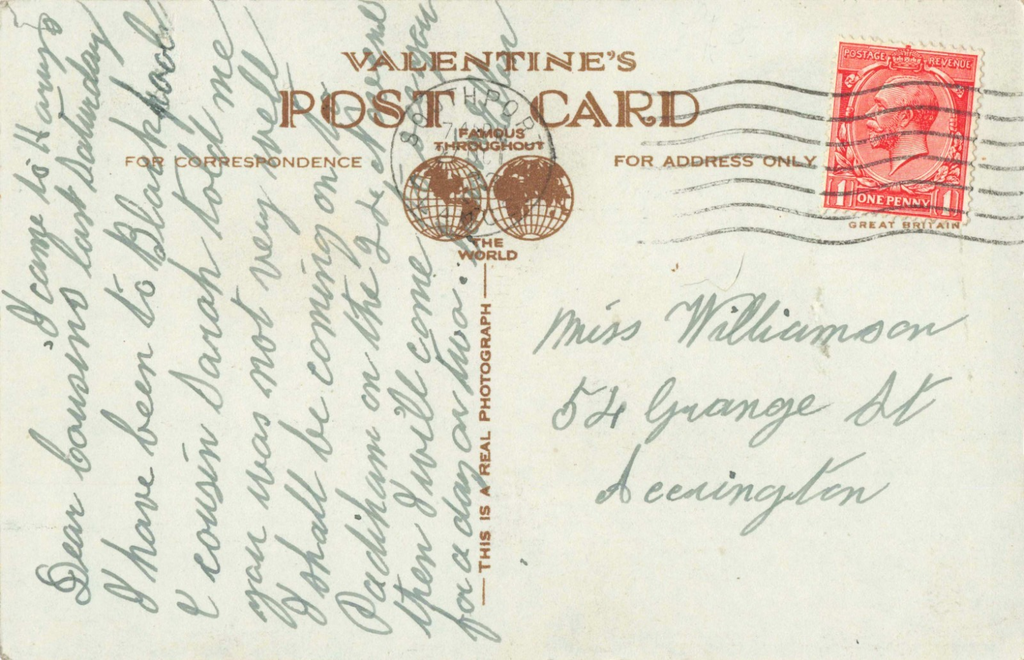 VALENTINE'S
POST CARD
FAMOUS
THROUGHOUT
THE
WORLD
FOR CORRESPONDENCE
FOR ADDRESS ONLY
THIS IS A REAL PHOTOGRAPH
POSTAGE REVENUE
1 ONE PENNY 1
GREAT BRITAIN
SOUTHPORT
I came to Harry's
Dear Cousins last Saturday
I have been to Blackpool
& cousin Sarah told me
you was not very well
I shall be coming on to
Padiham on the 9
then I will come
for a day or two.
Miss Williamson
54 Grange St
Accrington